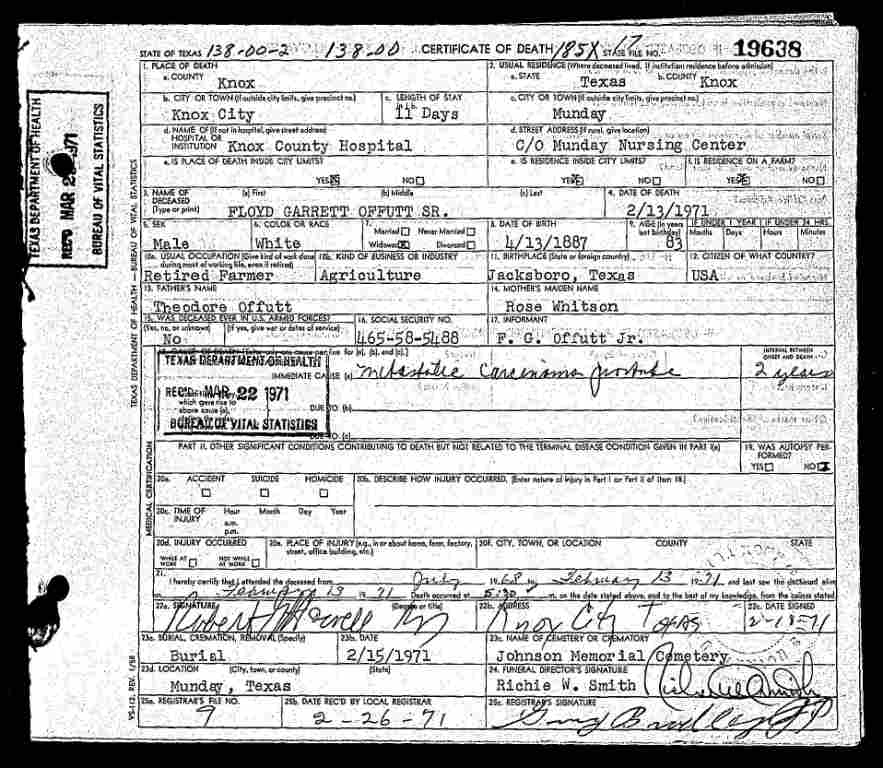 STATE OF TEXAS 138-00-2 138.00 CERTIFICATE OF DEATH 185X 17 STATE FILE NO. 19638
1. PLACE OF DEATH
a. COUNTY
Knox
2. USUAL RESIDENCE (Where deceased lived. If institution: residence before admission)
a. STATE
Texas
b. COUNTY
Knox
b. CITY OR TOWN (If outside city limits, give precinct no.)
Knox City
c. LENGTH OF STAY
in 1b.
11 Days
c. CITY OR TOWN (If outside city limits, give precinct no.)
Munday
d. NAME OF (If not in hospital, give street address)
HOSPITAL OR
INSTITUTION Knox County Hospital
d. STREET ADDRESS (If rural, give location)
C/O Munday Nursing Center
e. IS PLACE OF DEATH INSIDE CITY LIMITS?
YES☒ NO☐
e. IS RESIDENCE INSIDE CITY LIMITS?
YES☒ NO☐
f. IS RESIDENCE ON A FARM?
YES☒ NO☐
3. NAME OF
DECEASED
(Type or print)
(a) First (b) Middle (c) Last
FLOYD GARRETT OFFUTT SR.
4. DATE OF DEATH
2/13/1971
5. SEX
Male
6. COLOR OR RACE
White
7.
Married☐ Never Married☐
Widowed☒ Divorced☐
8. DATE OF BIRTH
4/13/1887
9. AGE (In years
last birthday)
83
IF UNDER 1 YEAR IF UNDER 24 HRS.
Months Days Hours Minutes
10a. USUAL OCCUPATION (Give kind of work done
during most of working life, even if retired)
Retired Farmer
10b. KIND OF BUSINESS OR INDUSTRY
Agriculture
11. BIRTHPLACE (State or foreign country)
Jacksboro, Texas
12. CITIZEN OF WHAT COUNTRY?
USA
13. FATHER'S NAME
Theodore Offutt
14. MOTHER'S MAIDEN NAME
Rose Whitson
15. WAS DECEASED EVER IN U.S. ARMED FORCES?
(Yes, no, or unknown) (If yes, give war or dates of service)
No
16. SOCIAL SECURITY NO.
465-58-5488
17. INFORMANT
F. G. Offutt Jr.
for (a), (b), and (c).]
TEXAS DEPARTMENT OF HEALTH
REC'D MAR 22 1971
BUREAU OF VITAL STATISTICS
IMMEDIATE CAUSE (a) metastatic Carcinoma prostate
INTERVAL BETWEEN
ONSET AND DEATH
2 years
which gave rise to
above cause (a),
DUE TO (b)
DUE TO (c)
PART II. OTHER SIGNIFICANT CONDITIONS CONTRIBUTING TO DEATH BUT NOT RELATED TO THE TERMINAL DISEASE CONDITION GIVEN IN PART I(a)
19. WAS AUTOPSY PER-
FORMED?
YES☐ NO☒
20a. ACCIDENT SUICIDE HOMICIDE
☐ ☐ ☐
20b. DESCRIBE HOW INJURY OCCURRED. (Enter nature of injury in Part I or Part II of item 18.)
20c. TIME OF
INJURY
Hour Month Day Year
a.m.
p.m.
20d. INJURY OCCURRED
WHILE AT
WORK ☐
NOT WHILE
AT WORK ☐
20e. PLACE OF INJURY (e.g., in or about home, farm, factory,
street, office building, etc.)
20f. CITY, TOWN, OR LOCATION COUNTY STATE
21.
I hereby certify that I attended the deceased from July 1968 to February 13 1971 and last saw the deceased alive
on February 13 1971 Death occurred at 5:30 m, on the date stated above, and to the best of my knowledge, from the causes stated
22a. SIGNATURE (Degree or title)
Robert
22b. ADDRESS
Knox City Texas
22c. DATE SIGNED
2-18-71
23a. BURIAL, CREMATION, REMOVAL (Specify)
Burial
23b. DATE
2/15/1971
23c. NAME OF CEMETERY OR CREMATORY
Johnson Memorial Cemetery
23d. LOCATION (City, town, or county) (State)
Munday, Texas
24. FUNERAL DIRECTOR'S SIGNATURE
Richie W. Smith
25a. REGISTRAR'S FILE NO.
9
25b. DATE REC'D BY LOCAL REGISTRAR
2-26-71
25c. REGISTRAR'S SIGNATURE
TEXAS DEPARTMENT OF HEALTH
REC'D MAR 1971
BUREAU OF VITAL STATISTICS
TEXAS DEPARTMENT OF HEALTH—BUREAU OF VITAL STATISTICS
MEDICAL CERTIFICATION
VS-112, REV. 1/58